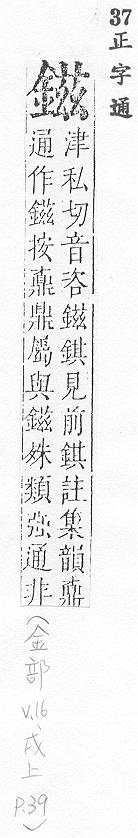 37 正字通
鎡
津私切音咨鎡錤見前錤註集韻鼒
通作鎡按鼒鼎屬與鎡殊類强通非
(金部 v.16、戌上 p.39)